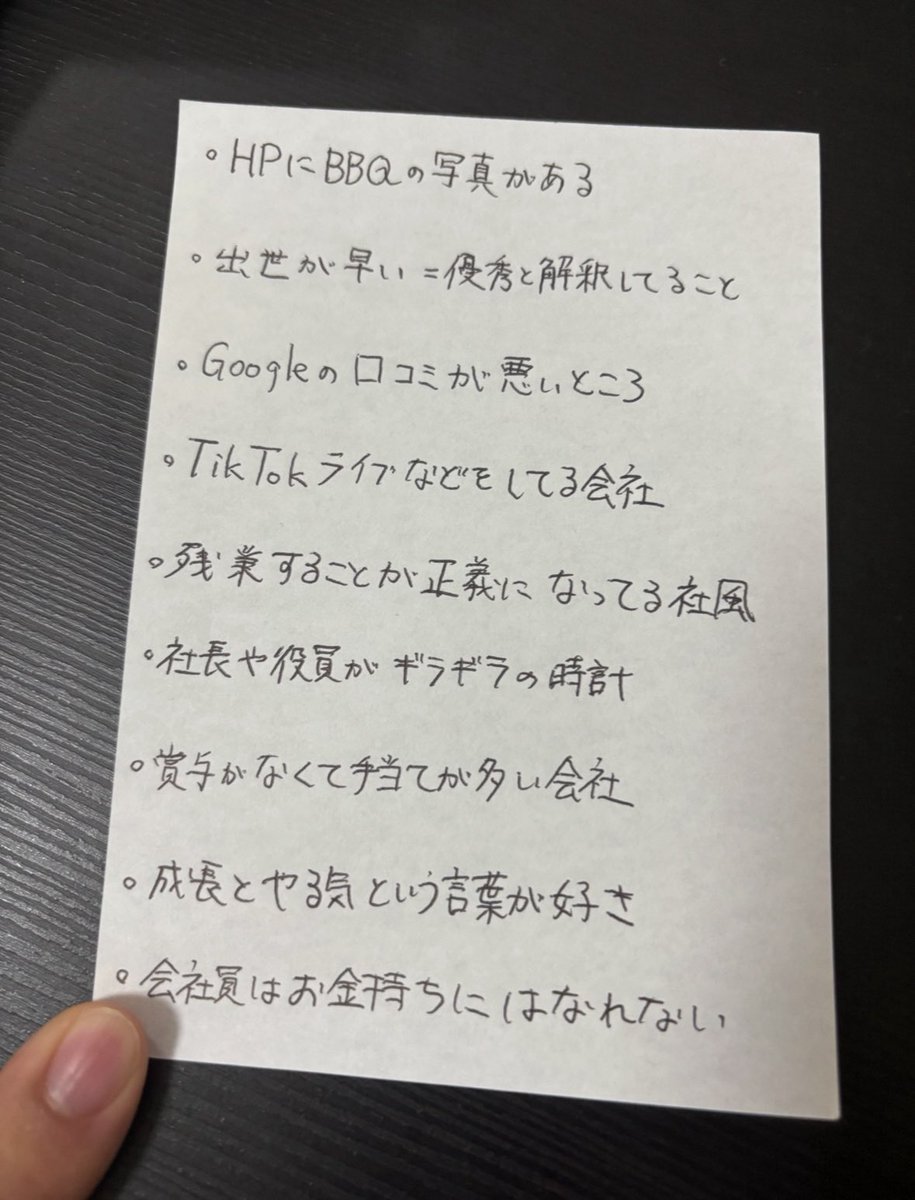 。HPにBBQの写真がある
。出世が早い=優秀と解釈してること
。Googleの口コミが悪いところ
。TikTokライブなどをしてる会社
。残業することが正義になってる社風
。社長や役員がギラギラの時計
。賞与がなくて手当てが多い会社
。成長とやる気という言葉が好き
。会社員はお金持ちにはなれない